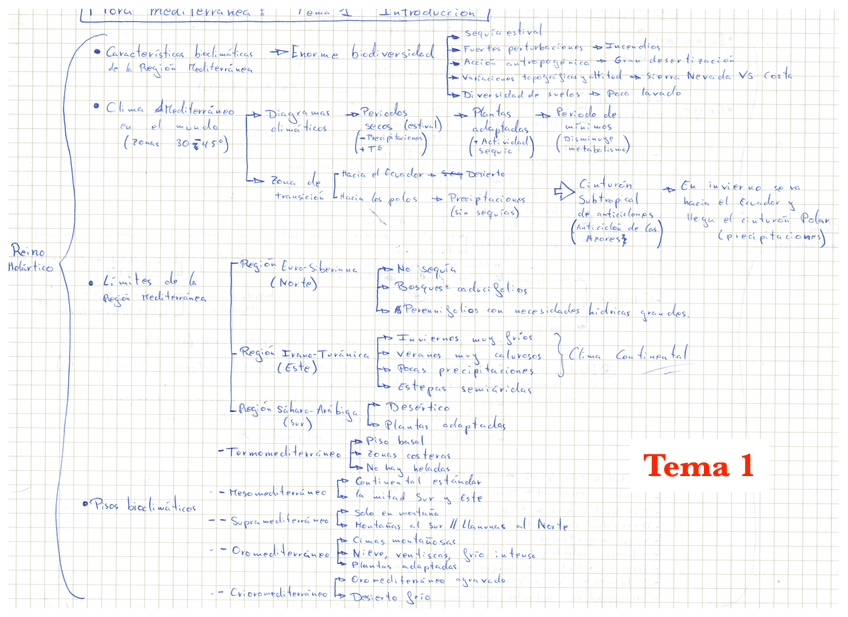 Flora mediterránea: Tema 1 Introducción
Reino
Holártico
• Características bioclimáticas
de la Región Mediterránea
→ Enorme biodiversidad
sequía estival
Fuertes perturbaciones → Incendios
Acción antropogénica → Gran desertización
Variaciones topográficas y altitud → Sierra Nevada Vs Costa
Diversidad de suelos → Poco lavado
• Clima Mediterráneo
en el mundo
(zonas 30-45º)
Diagramas
climáticos
→ Periodos
secos (estival)
(- Precipitaciones
+ Tª)
→ Plantas
adaptadas
(+ Actividad
sequía)
→ Periodo de
mínimos
(Disminuye
metabolismo)
Zona de
transición
Hacia el Ecuador → Desierto
Hacia los polos → Precipitaciones
(sin sequías)
Cinturón
Subtropical
de anticiclones
(Anticiclón de las
Azores)
→ En invierno se va
hacia el Ecuador y
llega el cinturón Polar
(precipitaciones)
• Límites de la
Región Mediterránea
Región Euro-Siberiana
(Norte)
No sequía
Bosques caducifolios
Perennifolios con necesidades hídricas grandes.
Región Irano-Turánica
(Este)
Inviernos muy fríos
Veranos muy calurosos
Pocas precipitaciones
Estepas semiáridas
Clima Continental
Región Sáharo-Arábiga
(sur)
Desértico
Plantas adaptadas
• Pisos bioclimáticos
- Termomediterráneo
Piso basal
Zonas costeras
No hay heladas
- - Mesomediterráneo
Continental estándar
la mitad Sur y Este
- - Supramediterráneo
Solo en montaña
Montañas al sur // Llanuras al Norte
- - Oromediterráneo
Cimas montañosas
Nieve, ventiscas, frío intenso
Plantas adaptadas
- - Crioromediterráneo
Oromediterráneo agravado
Desierto frío
Tema 1